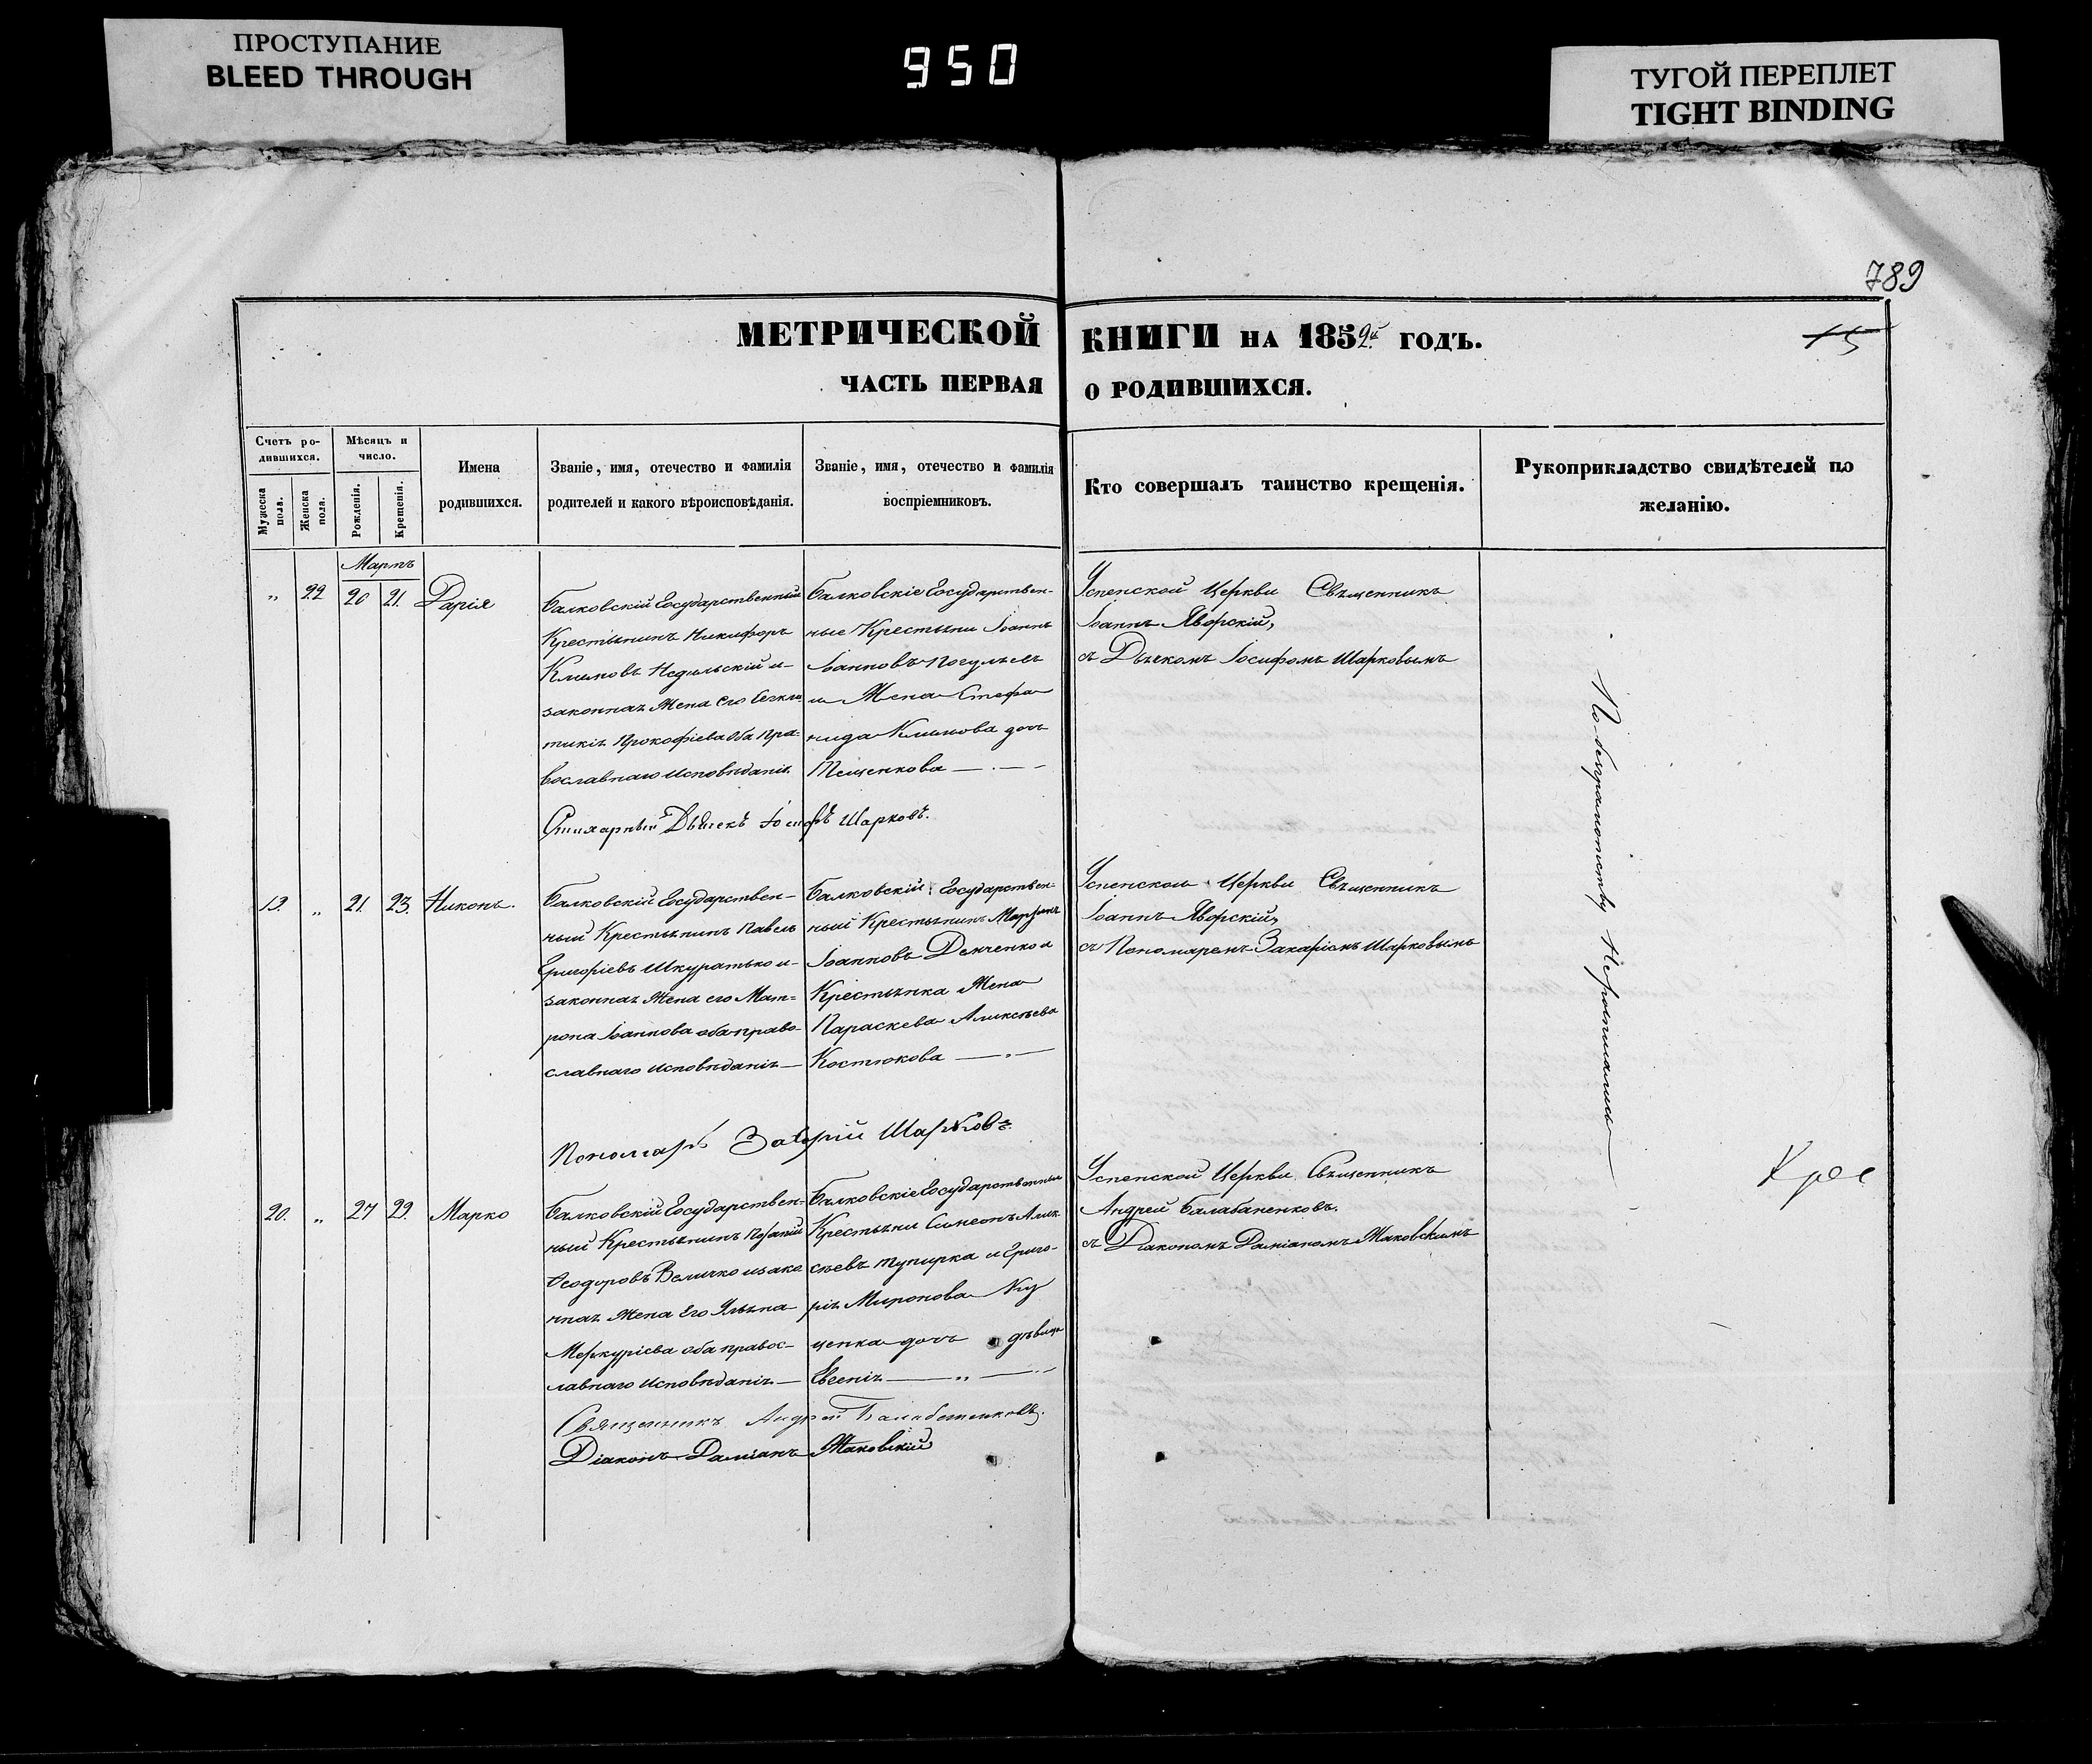 ПРОСТУПАНИЕ
BLEED THROUGH
950
ТУГОЙ ПЕРЕПЛЕТ
TIGHT BINDING
789
МЕТРИЧЕСКОЙ КНИГИ НА 1859й ГОДЪ.
15
ЧАСТЬ ПЕРВАЯ О РОДИВШИХСЯ.
Счетъ ро-
дившихся.
Мужеска
пола.
Женска
пола.
Мѣсяцъ и
число.
Рожденія.
Крещенія.
Имена
родившихся.
Званіе, имя, отечество и фамилія
родителей и какого вѣроисповѣданія.
Званіе, имя, отечество и фамилія
воспріемниковъ.
Кто совершалъ таинство крещенія.
Рукоприкладство свидѣтелей по
желанію.
Мартъ
„ 22 20 21. Дарія
Балковскій Государственный
Крестьянинъ Никифоръ
Климовъ Недильскій и
законная Жена его
Прокофіева оба пра-
вославнаго исповѣданія.
Балковскіе Государствен-
ные Крестьяни Іоаннъ
Іоанновъ
и Жена Стефа
нида Климова дочь
Тещенкова
Успенской Церкви Священникъ
Іоаннъ Яворскій,
съ Дьячкомъ Іосифомъ Шарковымъ
Стихарный Дьячекъ Іосифъ Шарковъ.
19. „ 21. 23. Никонъ.
Балковскій Государствен-
ный Крестьянинъ Павелъ
Григоріевъ Шкуратько и
законная Жена его Мат-
рона Іоаннова оба право-
славнаго исповѣданія
Балковскій Государствен-
ный Крестьянинъ
Іоанновъ Демченко и
Крестьянка Жена
Параскева Алексѣева
Костюкова
Успенской Церкви Священникъ
Іоаннъ Яворскій,
съ Пономаремъ Захаріемъ Шарковымъ
Пономарь Захарій Шарковъ.
20. „ 27 29. Марко
Балковскій Государствен-
ный Крестьянинъ
Ѳеодоровъ Величко и зако
нная Жена Его Ульяна
Меркуріева оба правос-
лавнаго исповѣданія
Балковскіе Государственные
Крестьяни Симеонъ Алек
сѣевъ и Григо-
рія Миронова
ценка дочь дѣвица
Евгенія
Успенской Церкви Священникъ
Андрей Балабаненковъ.
съ Діакономъ Даміаномъ Маковскимъ
Священникъ Андрей Балабаненковъ.
Діаконъ Даміанъ Маковскій
По безграмотству